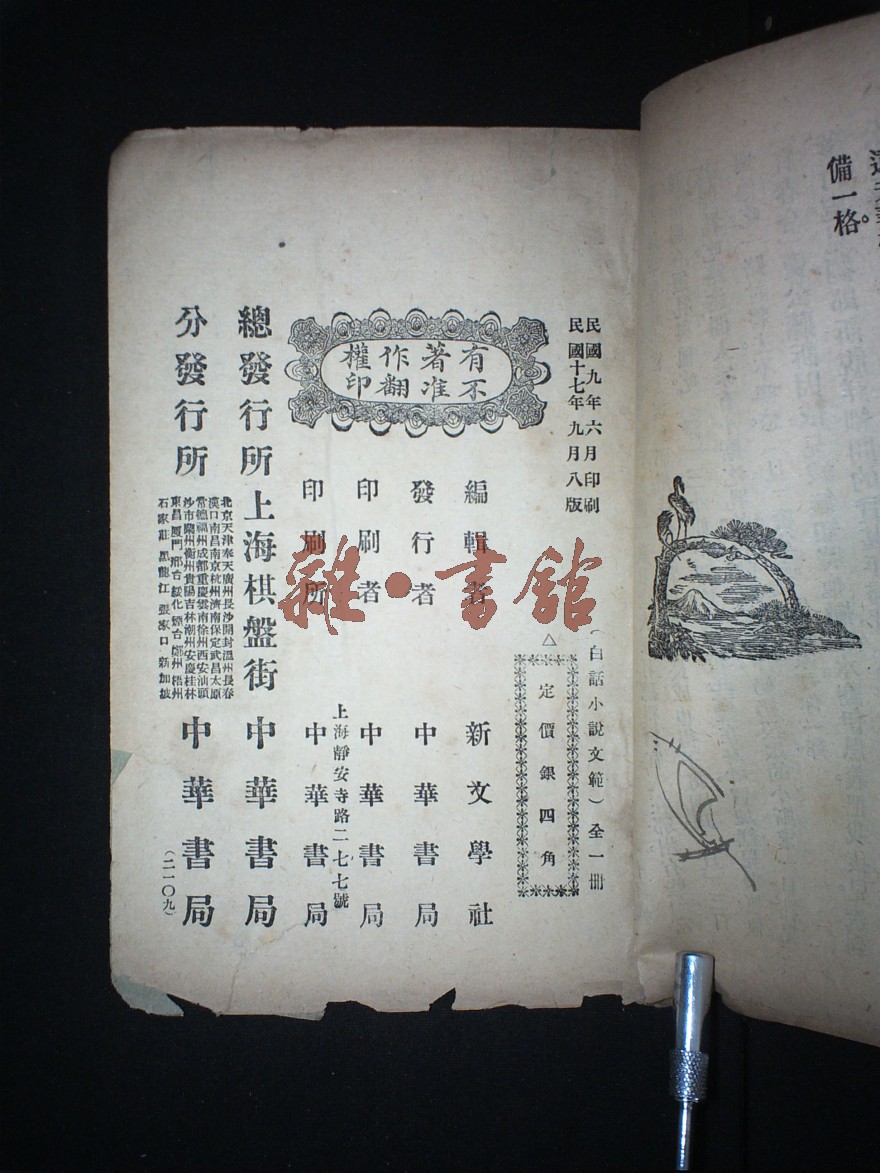 備一格。
民國九年六月印刷
民國十七年九月八版
(白話小說文範)全一冊
△定價銀四角
有著作權
不准翻印
編輯者 新文學社
發行者 中華書局
印刷者 中華書局
上海靜安寺路二七七號
印刷所 中華書局
總發行所 上海棋盤街 中華書局
分發行所
北京天津奉天廣州長沙開封溫州長春
漢口南昌南京杭州濟南保定武昌太原
常德福州成都重慶雲南徐州西安汕頭
沙市蘭州衡州貴陽吉林潮州安慶桂林
東昌廈門邢台綏化煙台鄭州梧州
石家莊 黑龍江 張家口 新加坡
中華書局
(二一〇九)
雜·書館